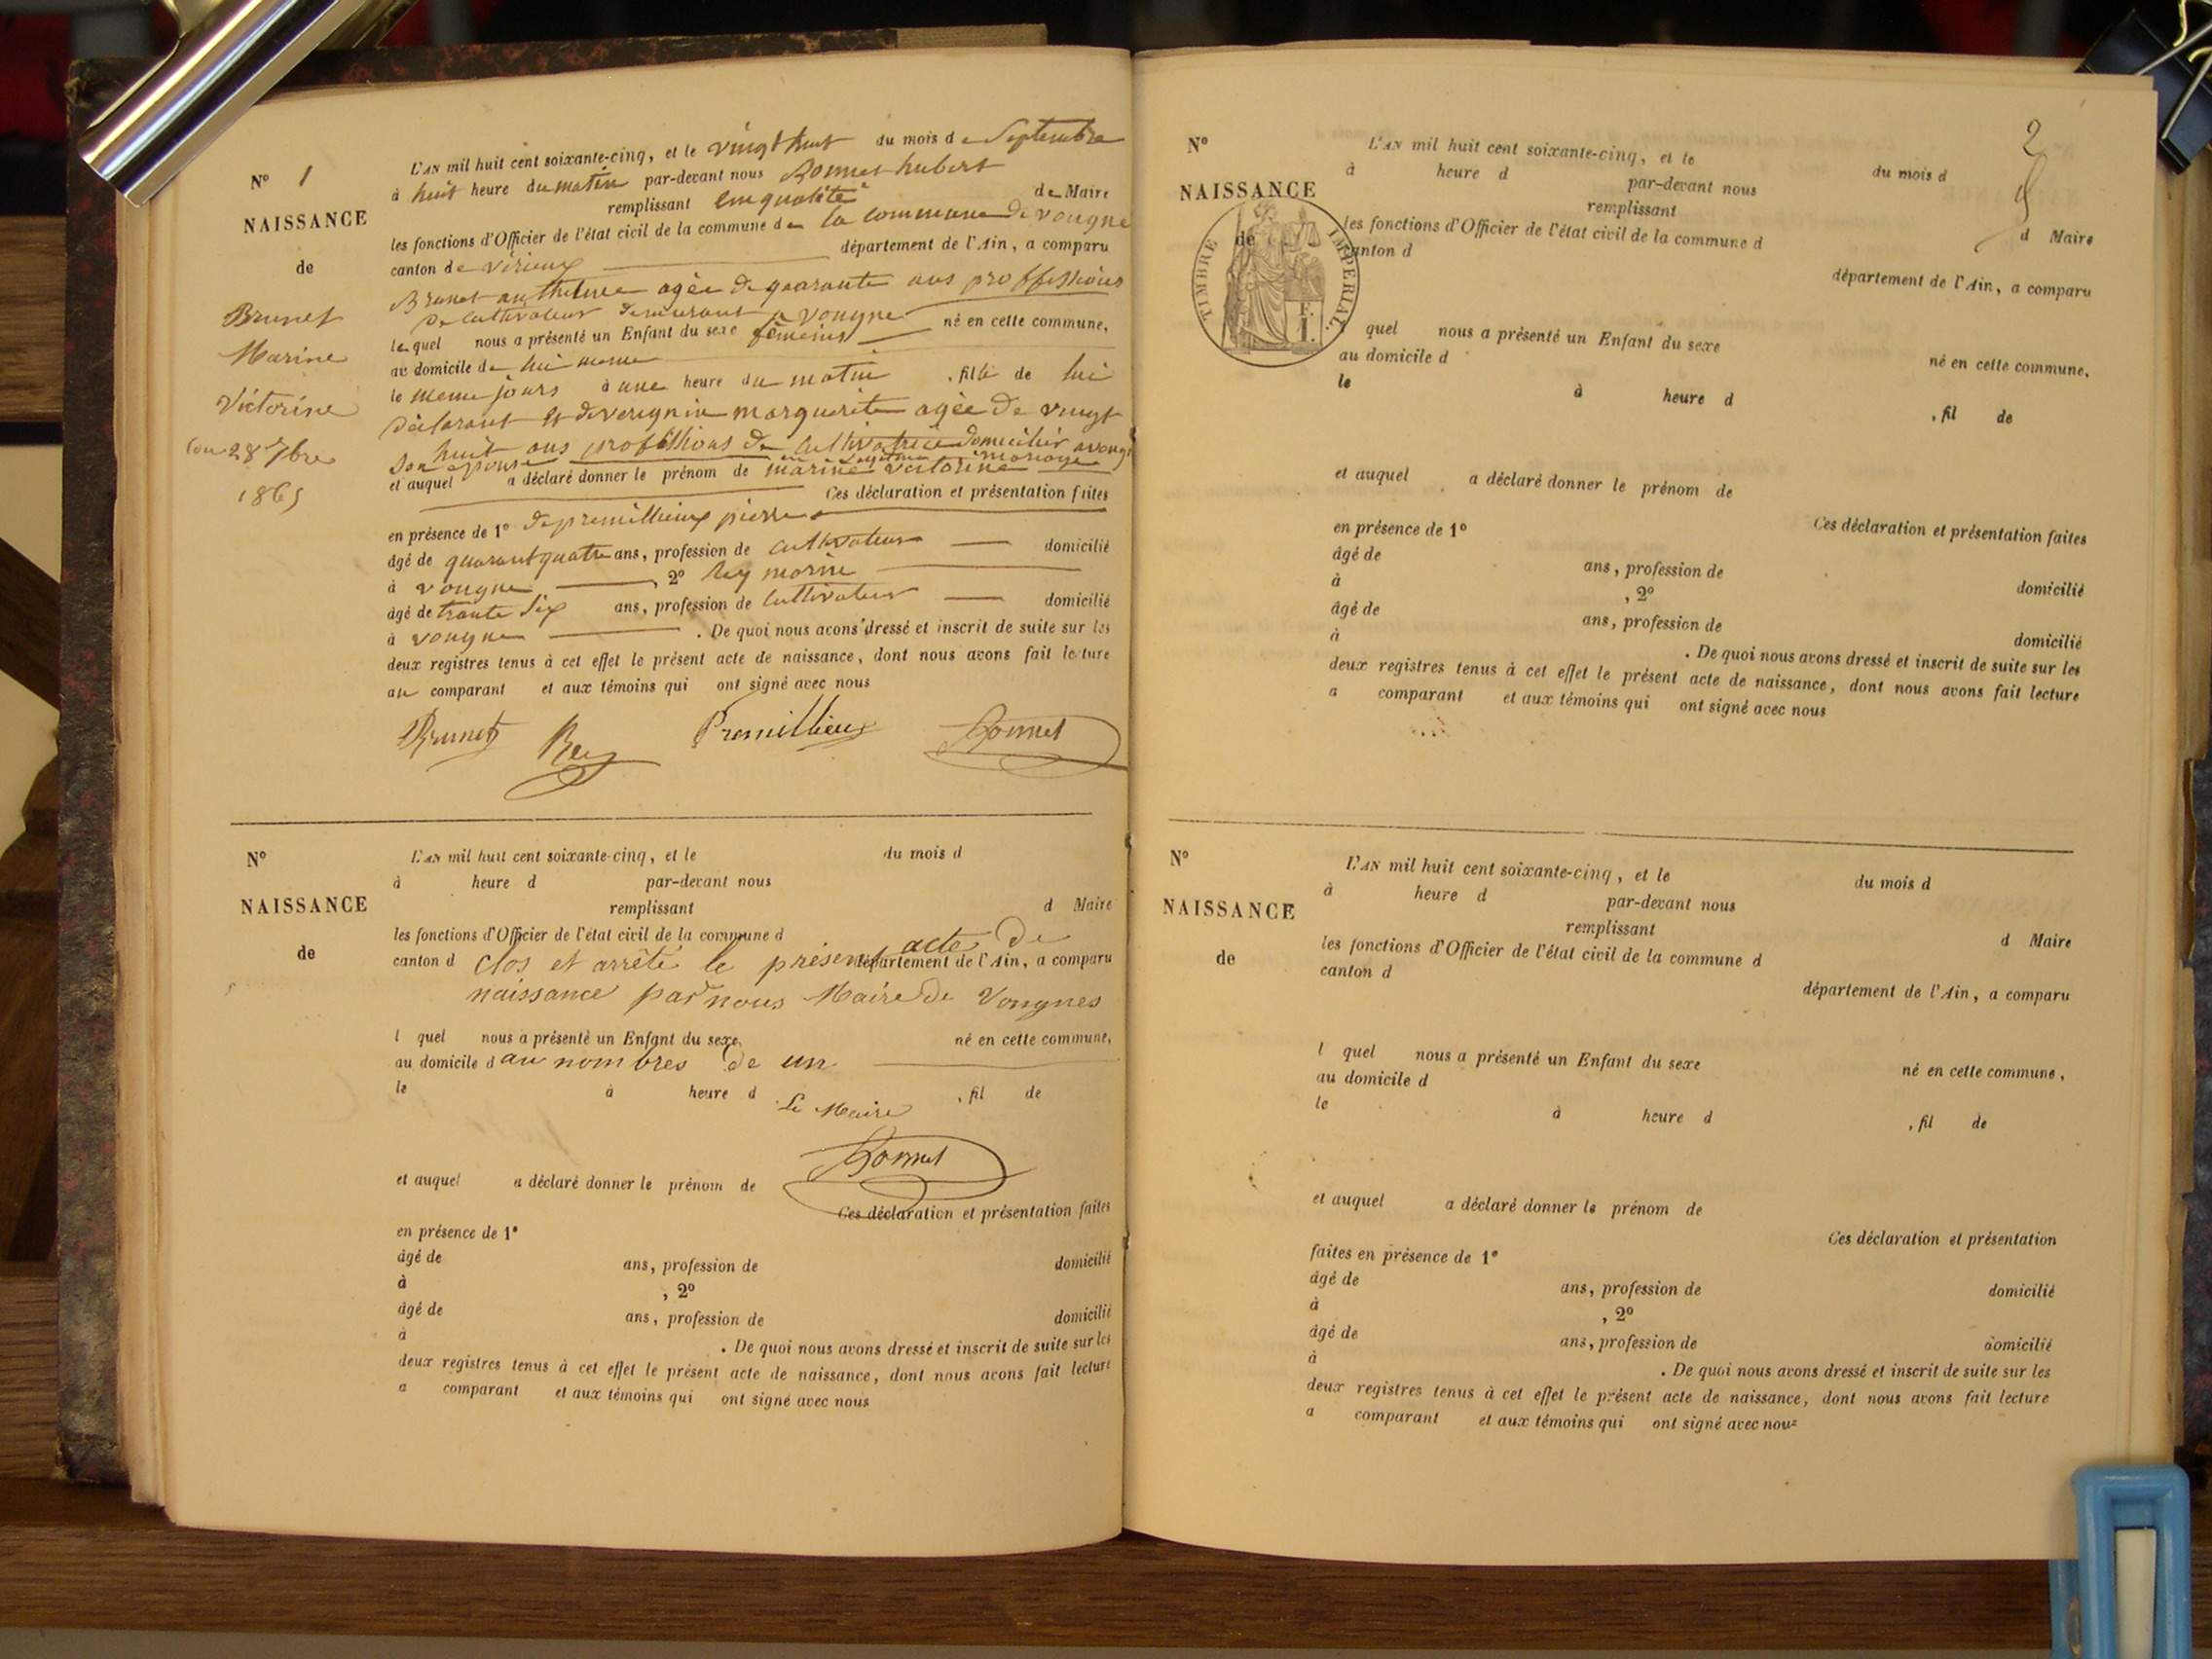 N° 1
NAISSANCE
de
Brunet
Marine
Victorine
du 28 7bre
1865
L'AN mil huit cent soixante-cinq, et le vingt huit du mois de Septembre
à huit heure du matin par-devant nous Bonnet hubert
remplissant en qualité de Maire
les fonctions d'Officier de l'état civil de la commune de la commune de vongne
canton de virieux département de l'Ain, a comparu
Brunet anthelme agée de quarante ans proffessions
De cultivateur demeurant a vongne
lequel nous a présenté un Enfant du sexe féminins né en cette commune,
au domicile de lui meme
le meme jours à une heure du matin , fille de lui
déclarant et de verignin marguerite agée de vingt
huit ans professions de cultivatrice domicilier a vongn
son epouse en légitime mariage
et auquel a déclaré donner le prénom de marine victorine
Ces déclaration et présentation faites
en présence de 1° de premillieux pierre
âgé de quarant quatre ans, profession de cultivateur domicilié
à vongne , 2° Rey morin
âgé de trante six ans, profession de cultivateur domicilié
à vongne . De quoi nous avons dressé et inscrit de suite sur les
deux registres tenus à cet effet le présent acte de naissance, dont nous avons fait lecture
au comparant et aux témoins qui ont signé avec nous
Brunet Rey Premillieux Bonnet
N°
NAISSANCE
de
L'AN mil huit cent soixante-cinq, et le du mois d
à heure d par-devant nous
remplissant d Maire
les fonctions d'Officier de l'état civil de la commune d
canton d département de l'Ain, a comparu
clos et arrêté le présent acte de
naissance par nous Maire de Vongnes
l quel nous a présenté un Enfant du sexe né en cette commune,
au domicile d au nombres de un
le à heure d , fil de
Le Maire
Bonnet
et auquel a déclaré donner le prénom de
Ces déclaration et présentation faites
en présence de 1°
âgé de ans, profession de domicilié
à , 2°
âgé de ans, profession de domicilié
à . De quoi nous avons dressé et inscrit de suite sur les
deux registres tenus à cet effet le présent acte de naissance, dont nous avons fait lecture
a comparant et aux témoins qui ont signé avec nous
2
N°
NAISSANCE
de
TIMBRE IMPERIAL.
F.
1.
L'AN mil huit cent soixante-cinq, et le du mois d
à heure d par-devant nous
remplissant d Maire
les fonctions d'Officier de l'état civil de la commune d
canton d département de l'Ain, a comparu
quel nous a présenté un Enfant du sexe né en cette commune,
au domicile d
le à heure d , fil de
et auquel a déclaré donner le prénom de
Ces déclaration et présentation faites
en présence de 1°
âgé de ans, profession de domicilié
à , 2°
âgé de ans, profession de domicilié
à . De quoi nous avons dressé et inscrit de suite sur les
deux registres tenus à cet effet le présent acte de naissance, dont nous avons fait lecture
a comparant et aux témoins qui ont signé avec nous
N°
NAISSANCE
de
L'AN mil huit cent soixante-cinq, et le du mois d
à heure d par-devant nous
remplissant d Maire
les fonctions d'Officier de l'état civil de la commune d
canton d département de l'Ain, a comparu
l quel nous a présenté un Enfant du sexe né en cette commune,
au domicile d
le à heure d , fil de
et auquel a déclaré donner le prénom de
Ces déclaration et présentation
faites en présence de 1°
âgé de ans, profession de domicilié
à , 2°
âgé de ans, profession de domicilié
à . De quoi nous avons dressé et inscrit de suite sur les
deux registres tenus à cet effet le présent acte de naissance, dont nous avons fait lecture
a comparant et aux témoins qui ont signé avec nous